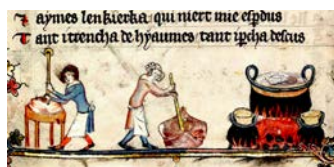 J aymes lenkierka qui niert mie espdus
T ant i trencha de hyaumes tant ipcha descus